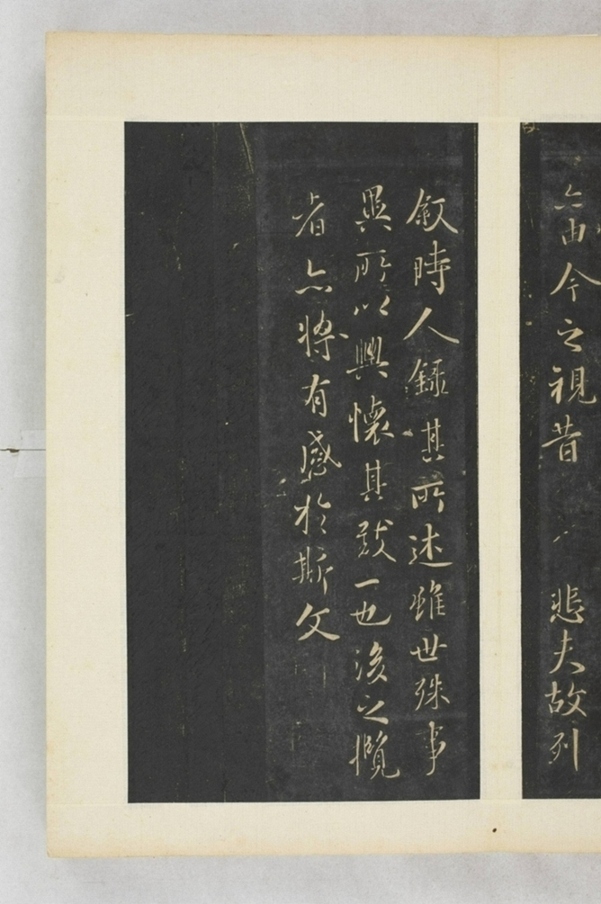 亦由今之視昔 悲夫故列
叙時人錄其所述雖世殊事
異所以興懷其致一也後之攬
者亦將有感於斯文